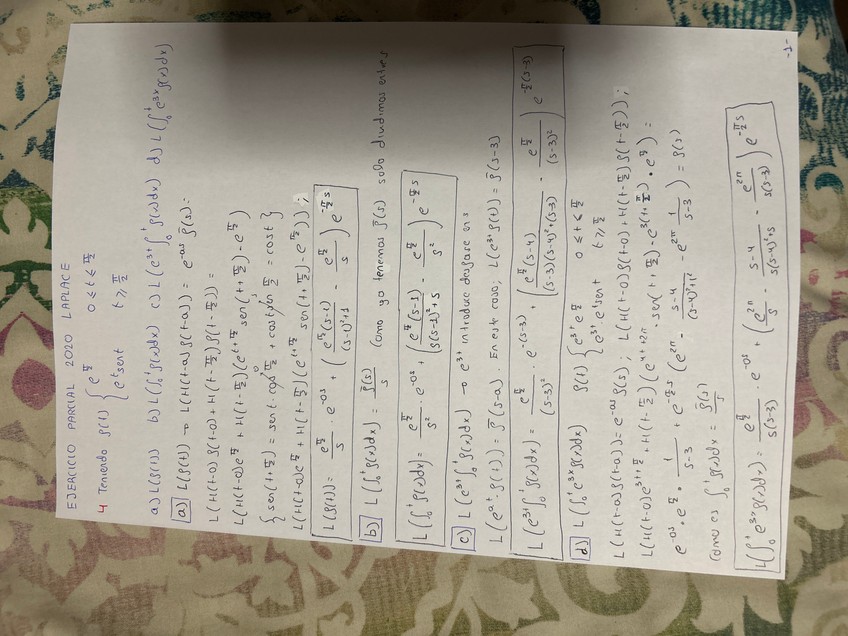 EJERCICIO PARCIAL 2020 LAPLACE
4 Teniendo f(t) { e^(π/2) 0 ≤ t ≤ π/2
e^t sent t ≥ π/2
a) L(f(t)) b) L(∫₀ᵗ f(x)dx) c) L(e^(3t) ∫₀ᵗ f(x)dx) d) L(∫₀ᵗ e^(3x) f(x)dx)
a) L(f(t)) → L(H(t-a)f(t-a)) = e^(-as) f̄(s) =
L(H(t-0)f(t-0) + H(t-π/2)f(t-π/2)) =
L(H(t-0)e^(π/2) + H(t-π/2)(e^(t+π/2) sen(t+π/2) - e^(π/2))
{ sen(t+π/2) = sent·cos π/2 + cost sen π/2 = cost }
L(H(t-0)e^(π/2) + H(t-π/2)(e^(t+π/2) sen(t+π/2) - e^(π/2)));
L(f(t)) = e^(π/2)/s · e^(-0s) + (e^(π/2)(s-1)/((s-1)²+1) - e^(π/2)/s) e^(-π/2 s)
b) L(∫₀ᵗ f(x)dx) = f̄(s)/s como ya tenemos f̄(s) solo dividimos entre s
L(∫₀ᵗ f(x)dx) = e^(π/2)/s² · e^(-0s) + (e^(π/2)(s-1)/(s(s-1)²+s) - e^(π/2)/s²) e^(-π/2 s)
c) L(e^(3t) ∫₀ᵗ f(x)dx) → e^(3t) introduce desfase en s
L(e^(at)·f(t)) = f̄(s-a). En este caso; L(e^(3t) f(t)) = f̄(s-3)
L(e^(3t) ∫₀ᵗ f(x)dx) = e^(π/2)/(s-3)² · e^(-0(s-3)) + (e^(π/2)(s-4)/((s-3)(s-4)²+(s-3)) - e^(π/2)/(s-3)²) e^(-π/2(s-3))
d) L(∫₀ᵗ e^(3x) f(x)dx) f(t) { e^(3t) e^(π/2) 0 ≤ t ≤ π/2
e^(3t)·e^t sent t ≥ π/2
L(H(t-a)f(t-a)) = e^(-as) f̄(s); L(H(t-0)f(t-0) + H(t-π/2)f(t-π/2));
L(H(t-0)e^(3t+π/2) + H(t-π/2)(e^(4t+2π)·sen(t+π/2) - e^(3(t+π/2))·e^(π/2)) =
e^(-0s)·e^(π/2)·1/(s-3) + e^(-π/2 s)(e^(2π)·(s-4)/((s-4)²+1²) - e^(2π) 1/(s-3)) = f̄(s)
como es ∫₀ᵗ f(x)dx = f̄(s)/s
L(∫₀ᵗ e^(3x) f(x)dx) = e^(π/2)/(s(s-3)) · e^(-0s) + (e^(2π)/s · (s-4)/(s(s-4)²+s) - e^(2π)/(s(s-3))) e^(-π/2 s)
-1-